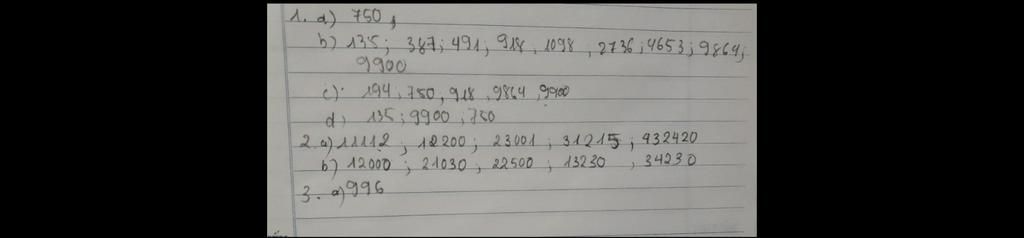 1. a) 750,
b) 135; 387; 491; 918, 1098, 2736; 4653; 9864;
9900
c) 194, 750, 918, 9864, 9900
d) 135; 9900, 750
2. a) 11112; 12200; 23001; 31215; 932420
b) 12000; 21030, 22500; 13230, 34230
3. a) 996